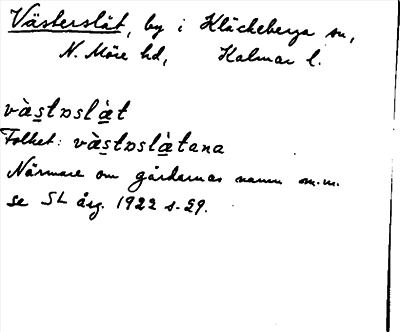 Västerslät, by i Kläckeberga sn,
N. Möre hd, Kalmar l.
vàs̲tɒslà̲t
Folket: vàs̲tɒslà̲tana
Närmare om gårdarnas namn m.m.
se SL årg. 1922 s. 29.